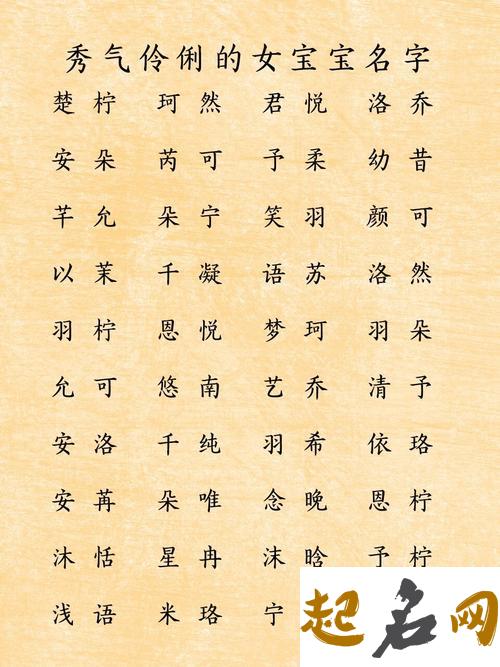 秀气伶俐的女宝宝名字
楚柠 珂然 君悦 洛乔
安朵 芮可 予柔 幼昔
芊允 朵宁 笑羽 颜可
以茉 千凝 语苏 洛然
羽柠 恩悦 梦珂 羽朵
允可 悠南 艺乔 清予
安洛 千纯 羽希 依珞
安苒 朵唯 念晚 恩柠
沐恬 星冉 沫晗 予柠
浅语 米珞 宁
起名网